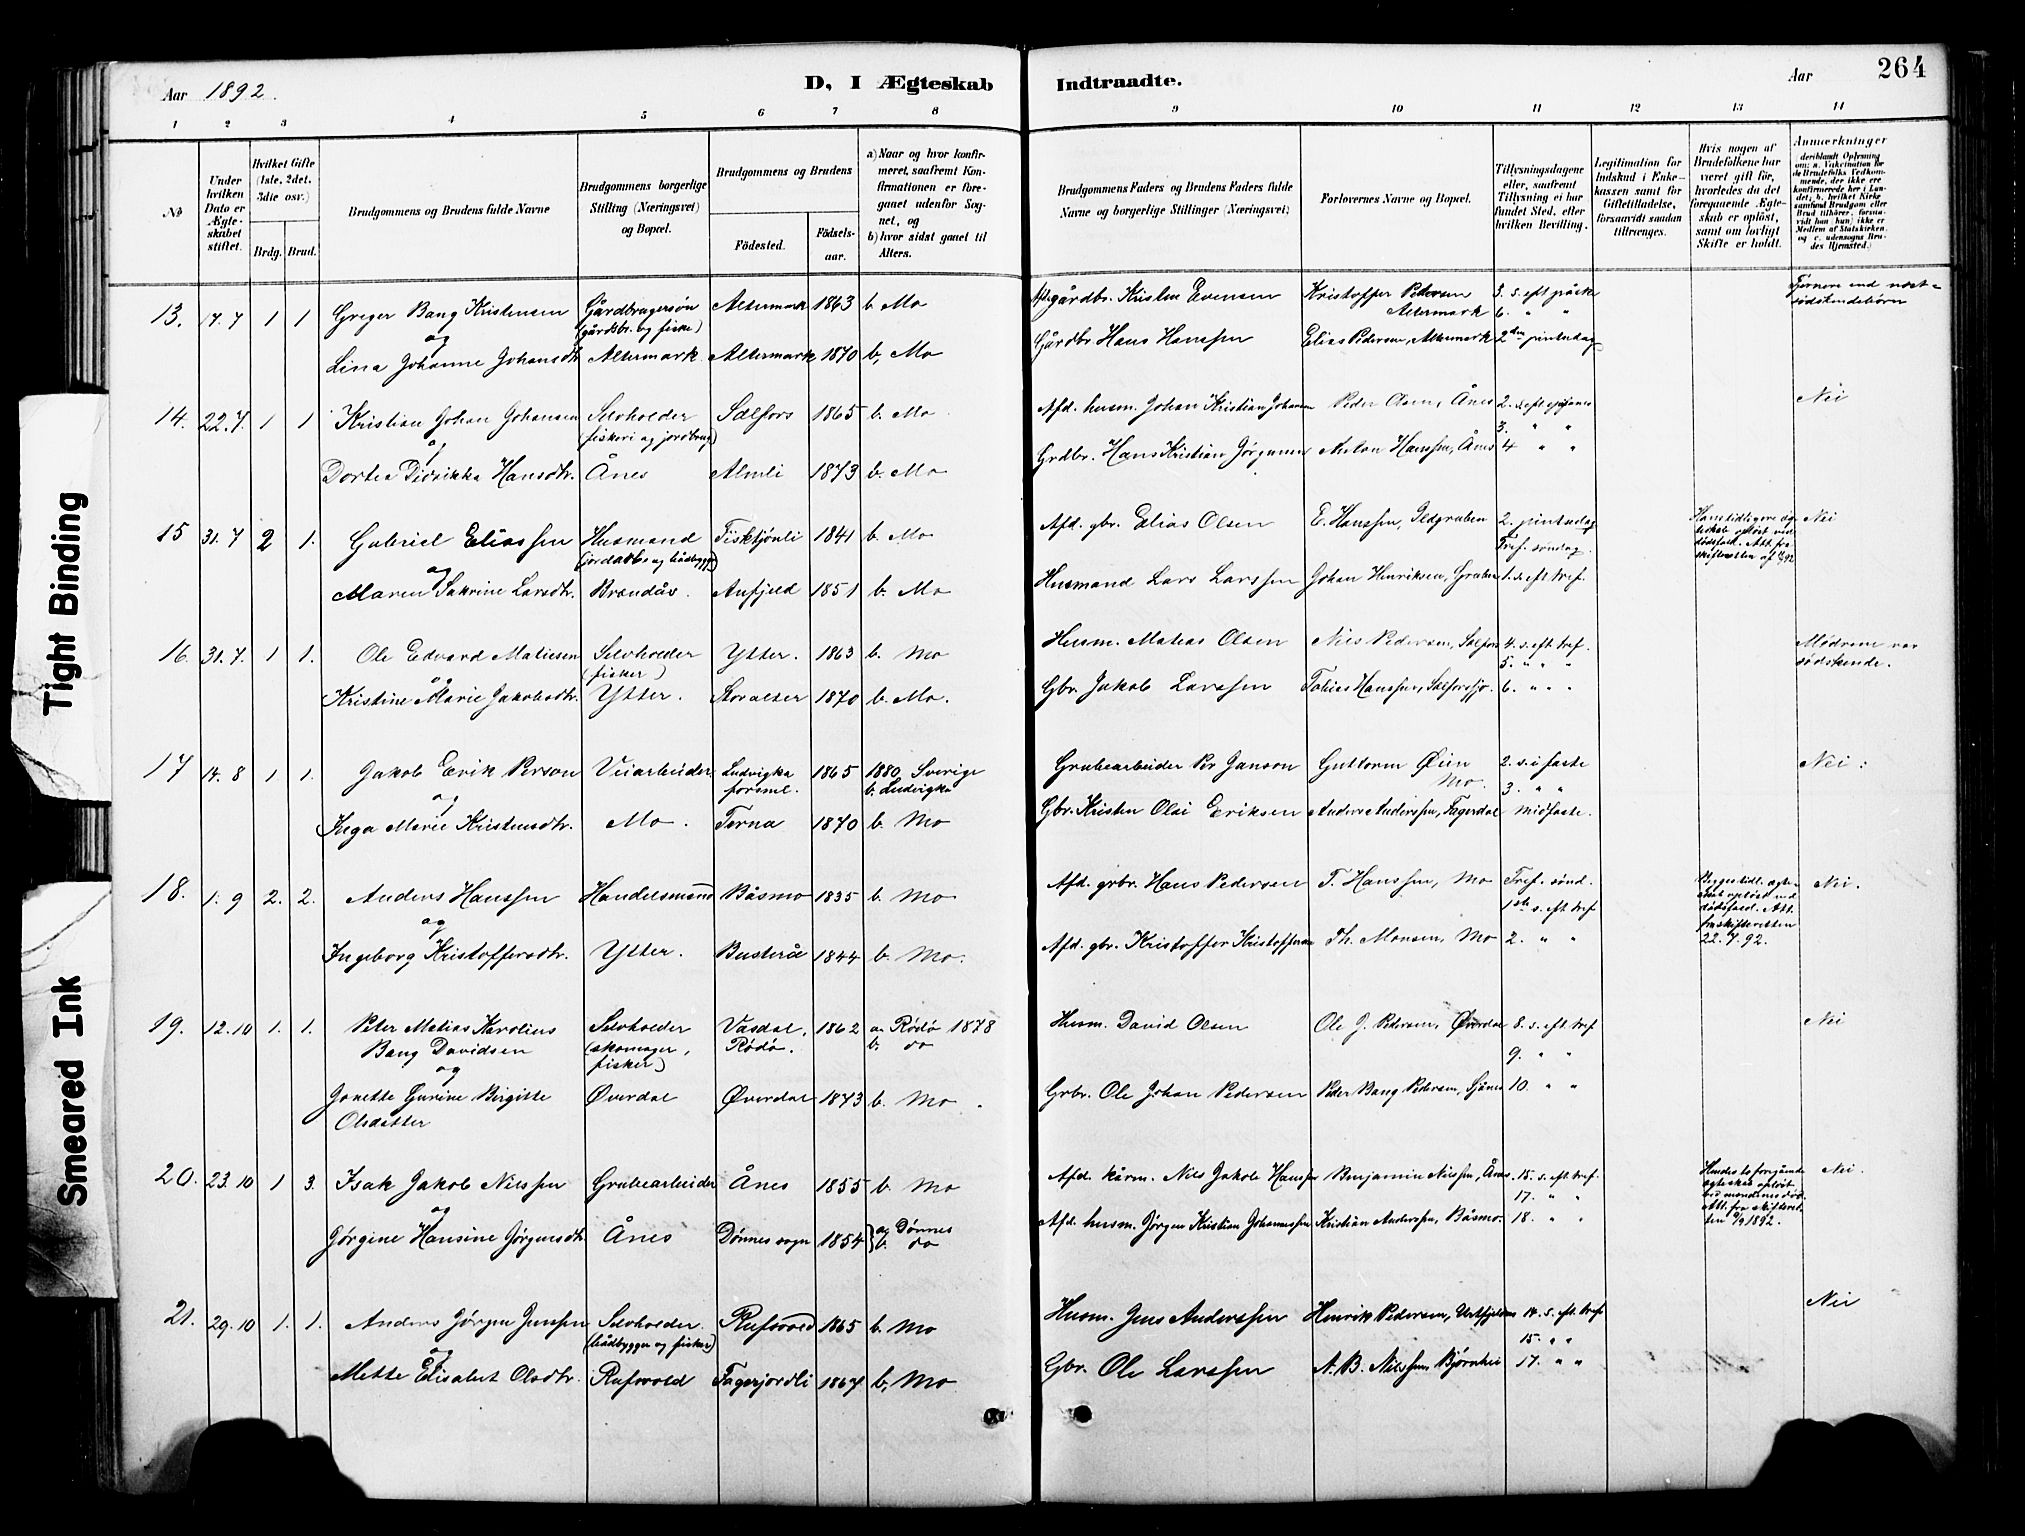 Aar 1892.
D, I Ægteskab Indtraadte.
Aar
264
1 2 3 4 5 6 7 8 9 10 11 12 13 14
No
Under hvilken Dato er Ægteskabet stiftet.
Hvilket Gifte (1ste, 2det, 3die osv.)
Brdg. Brud.
Brudgommens og Brudens fulde Navne
Brudgommens borgerlige Stilling (Næringsvei) og Bopæl.
Brudgommens og Brudens
Fødested. Fødselsaar.
a) Naar og hvor konfirmeret, saafremt Konfirmationen er foregaaet udenfor Sognet, og
b) hvor sidst gaaet til Alters.
Brudgommens Faders og Brudens Faders fulde Navne og borgerlige Stillinger (Næringsvei)
Forlovernes Navne og Bopæl.
Tillysningsdagene eller, saafremt Tillysning ei har fundet Sted, efter hvilken Bevilling.
Legitimation for Indskud i Enkekassen samt for Giftetilladelse, forsaavidt saadan tiltrænges.
Hvis nogen af Brudefolkene har været gift før, hvorledes da det foregaaende Ægteskab er opløst, samt om lovligt Skifte er holdt.
Anmærkninger
13. 17.7 1 1 Greger Bang Kristensen Gårdbrugersøn Altermark 1863 b. Mo gårdbr. Kristen Evensen Kristoffer Pedersen 3. s. eft påske
og (gårdsbr. og fiske) Altermark 6. " "
Lina Johanne Johansdtr. Altermark Altermark 1870 b. Mo Gårdbr Hans Hanssen Elias Pedersen, Altermark 2den pintsdag
sødskendebörn
14. 22.7. 1 1 Kristian Johan Johansen Selvholder Selfors 1865 b. Mo Afd. husm. Johan Kristian Johansen Peder Olsen, Ånes 2. s. eft epifanes Nei
og (fiskeri og jordbrug) 3. " "
Dortea Didrikka Hansdtr. Ånes Almli 1873 b. Mo Grdbr. Hans Kristian Jørgensen Anton Hanssen, Ånes 4 " "
15 31.7 2 1. Gabriel Eliassen Husmand Fisktjönli 1841 b. Mo Afd. gbr. Elias Olsen E. Hanssen, Gedgruben 2. pintsdag Nei
og Tref. søndag
Maren Sakrine Larsdtr. Brandås. Anfjeld 1851 b. Mo Husmand Lars Larssen Johan Henriksen, Gruben 1. s. eft tref.
16. 31.7. 1 1. Ole Edvard Matiesen Selvholder Ytter. 1863 b. Mo Husm. Matias Olsen Niels Pedersen, Selfors 4. s. eft tref. Mødrene var
og (fisker) 5. " " " sødskende.
Kristine Marie Jakobsdtr. Ytter. Storalter 1870 b. Mo. Gbr. Jakob Larssen Tobias Hanssen, Selforssjö. 6. " " "
17 14.8 1 1. Jakob Erik Person Veiarbeider Ludvigka 1865 1880 Sverige Grubearbeider Per Janson Guttorm Øien 2. s. i faste Nei
og forsml. b. Ludvigka Mo. 3. " "
Inga Marie Kristensdtr. Mo. Terna 1870 b. Mo Gbr. Kristen Olai Eriksen Anders Anderssen, Fagerdal midfaste.
18. 1.9 2. 2. Anders Hanssen Handelsmand Båsmo 1835 b. Mo Afd. grbr. Hans Pedersen T. Hanssen, Mo Tref. sönd. Nei.
og 1ste s. eft tref
Ingeborg Kristoffersdtr. Ytter. Busterå 1844 b. Mo. Afd. gbr. Kristoffer Kristoffersen Th. Monsen, Mo 2. " " 22.7.92.
19. 12.10 1. 1. Peter Matias Karolius Selvholder Vasdal, 1862 a. Rödö 1878 Husm. David Olsen Ole J. Pedersen, Øverdal 8. s. eft tref Nei
Bang Davidsen (skomager, Rödö. b. do 9. " "
og fisker)
Jonette Gurine Birgitte Øverdal Øverdal 1873 b. Mo. Grbr. Ole Johan Pedersen Peder Bang Pedersen, Sjånes 10. " "
Olsdatter
20. 23.10 1 3. Isak Jakob Nilssen Grubearbeider Ånes 1855 b. Mo Afd. kårm. Nils Jakob Hanssen Benjamin Nilssen, Ånes. 15. s. eft tref. Nei.
og 17. " "
Gørgine Hansine Jørgensdtr. Ånes Dønnes sogn 1854 a. Dønnes b. do Afd. husm. Jørgen Kristian Johannessen Kristian Anderssen, Båsmo. 18. " "
21. 29.10 1. 1. Anders Jørgen Jenssen Selvholder. Rufsvold 1865 b. Mo Husm. Jens Anderssen Henrik Pedersen, 14. s. eft. tref Nei
og (bådbygger og fisker) 15. " "
Mette Elisabet Olsdtr. Rufsvold Fagerjordli 1867 b. Mo Gbr. Ole Larssen A. B. Nilssen, Bjørnhei 17. " "
Tight Binding
Smeared Ink